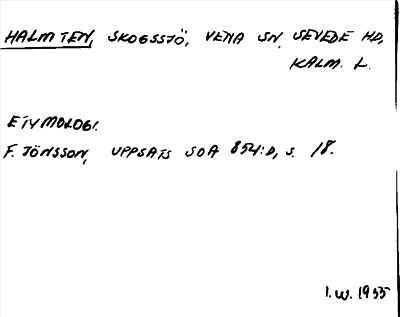 HALMTEN, SKOGSSJÖ, VENA SN, SEVEDE HD,
KALM. L.
ETYMOLOGI.
F. JÖNSSON, UPPSATS SOA 854:D, S. 18.
I.W. 1955